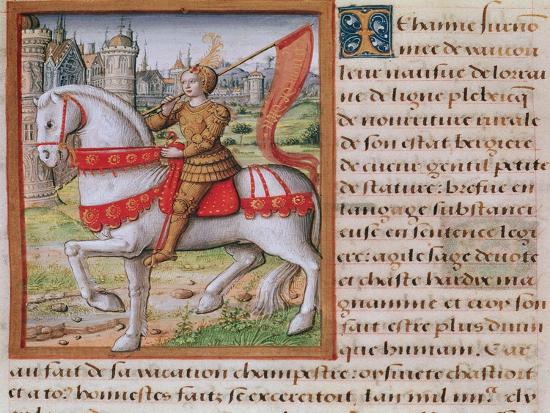 Iehanne surno
mee de vaucou
leur naisue de lorrai
ne de ligne plebeicq̃
de nourriture rurale
de son estat bergiere
de cueur gentil petite
de stature: brefue en
langage substanci
euse en sentence leg
ere: agile sage deuote
et chaste hardix ma
gnanime et croy son
fait estre plus diuin
que humain. Car
au fait de sa vacation champestre: oysiuete chastioit
et a toꝰ honnestes faitz se exercetoit, Lan mil